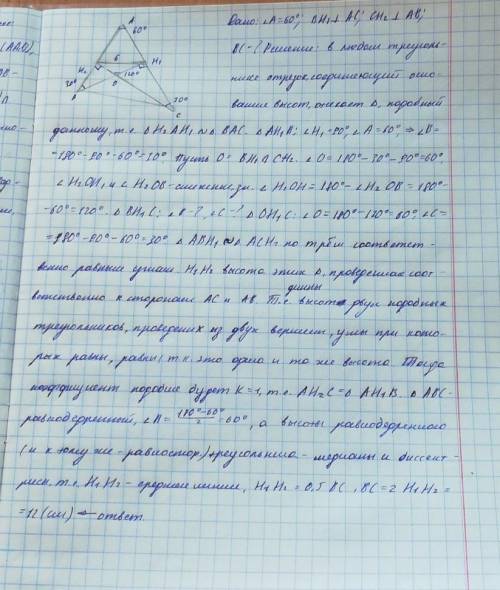 Дано: ∠A=60°; BH₁⊥AC; CH₂⊥AB;
BC-? Решение: в любом треуголь-
нике отрезок соединяющий осно-
вание высот, отсекает Δ, подобный
A
60°
6
H₂
H₁
120°
O
30°
B
30°
C
данному, т.е. ΔH₂AH₁ ~ ΔBAC. ΔAH₁B; ∠H₁=90°, ∠A=60°, ⇒ ∠B=
=180°-90°-60°=30°. Пусть O=BH₁∩CH₂. ∠O=180°-30°-90°=60°,
∠H₂OH₁ и ∠H₂OB-смежные. ∠H₁OH=180°-∠H₂OB=180°-
-60°=120°. ΔBH₁C; ∠B-?, ∠C-? ΔOH₁C: ∠O=180°-120°=60°, ∠C=
=180°-90°-60°=30°. ΔABH₁ ~ ΔACH₂ по трём соответст-
венно равным углам. H₁H₂ высота этих Δ, проведенная соот-
ветственно к сторонам AC и AB. Т.е. длины высоты двух подобных
треугольников, проведених из двух вершин, углы при кото-
рых равны, равны т.к. это одна и та же высота. Тогда
коэффициент подобия будет K=1, т.е. AH₂C=ΔAH₁B. ΔABC-
равнобедренный, ∠B=(180°-60°)/2=60°, а высоты равнобедренного
(и к тому же - равностор.) треугольника - медианы и биссект-
рисы, т.е. H₁H₂ - средняя линия, H₁H₂=0,5 BC, BC=2 H₁H₂=
=12(см) ← ответ.